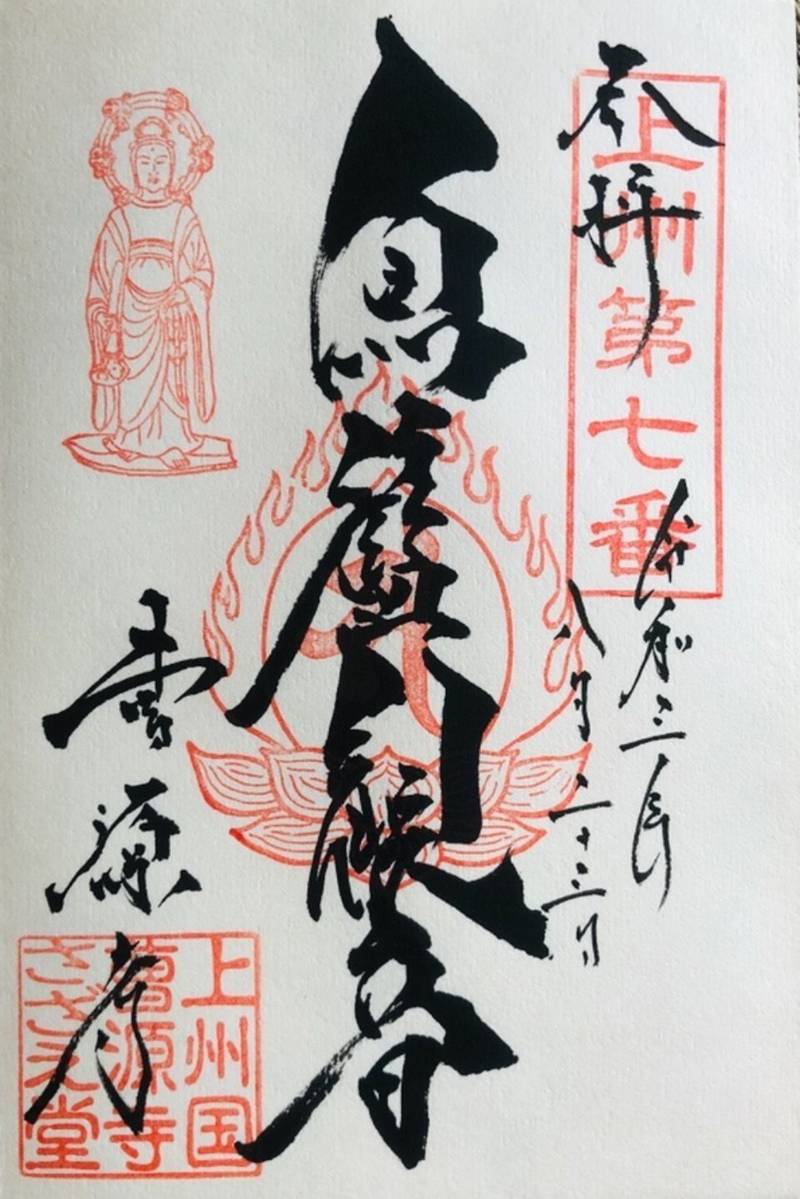 奉拝
上州第七番
令和三年
八月二十三日
魚籃観音
曹源寺
上州国
曹源寺
さざえ堂